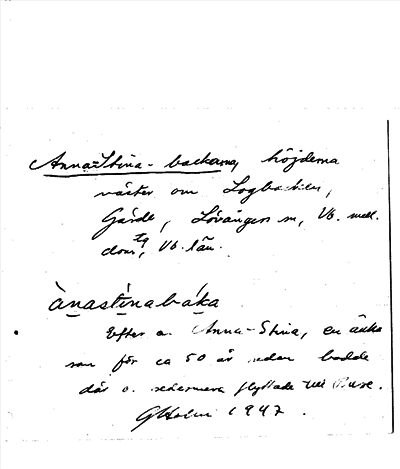 Anna-Stina-backarna, höjderna
väster om Logbacken,
Gärde, Lövångers sn, Vb. mell.
doms tg, Vb. län.
ànastìnabáka
Efter a. Anna-Stina, en änka
som för ca 50 år sedan bodde
där o. sedermera flyttade till Bure.
GHolm 1947.